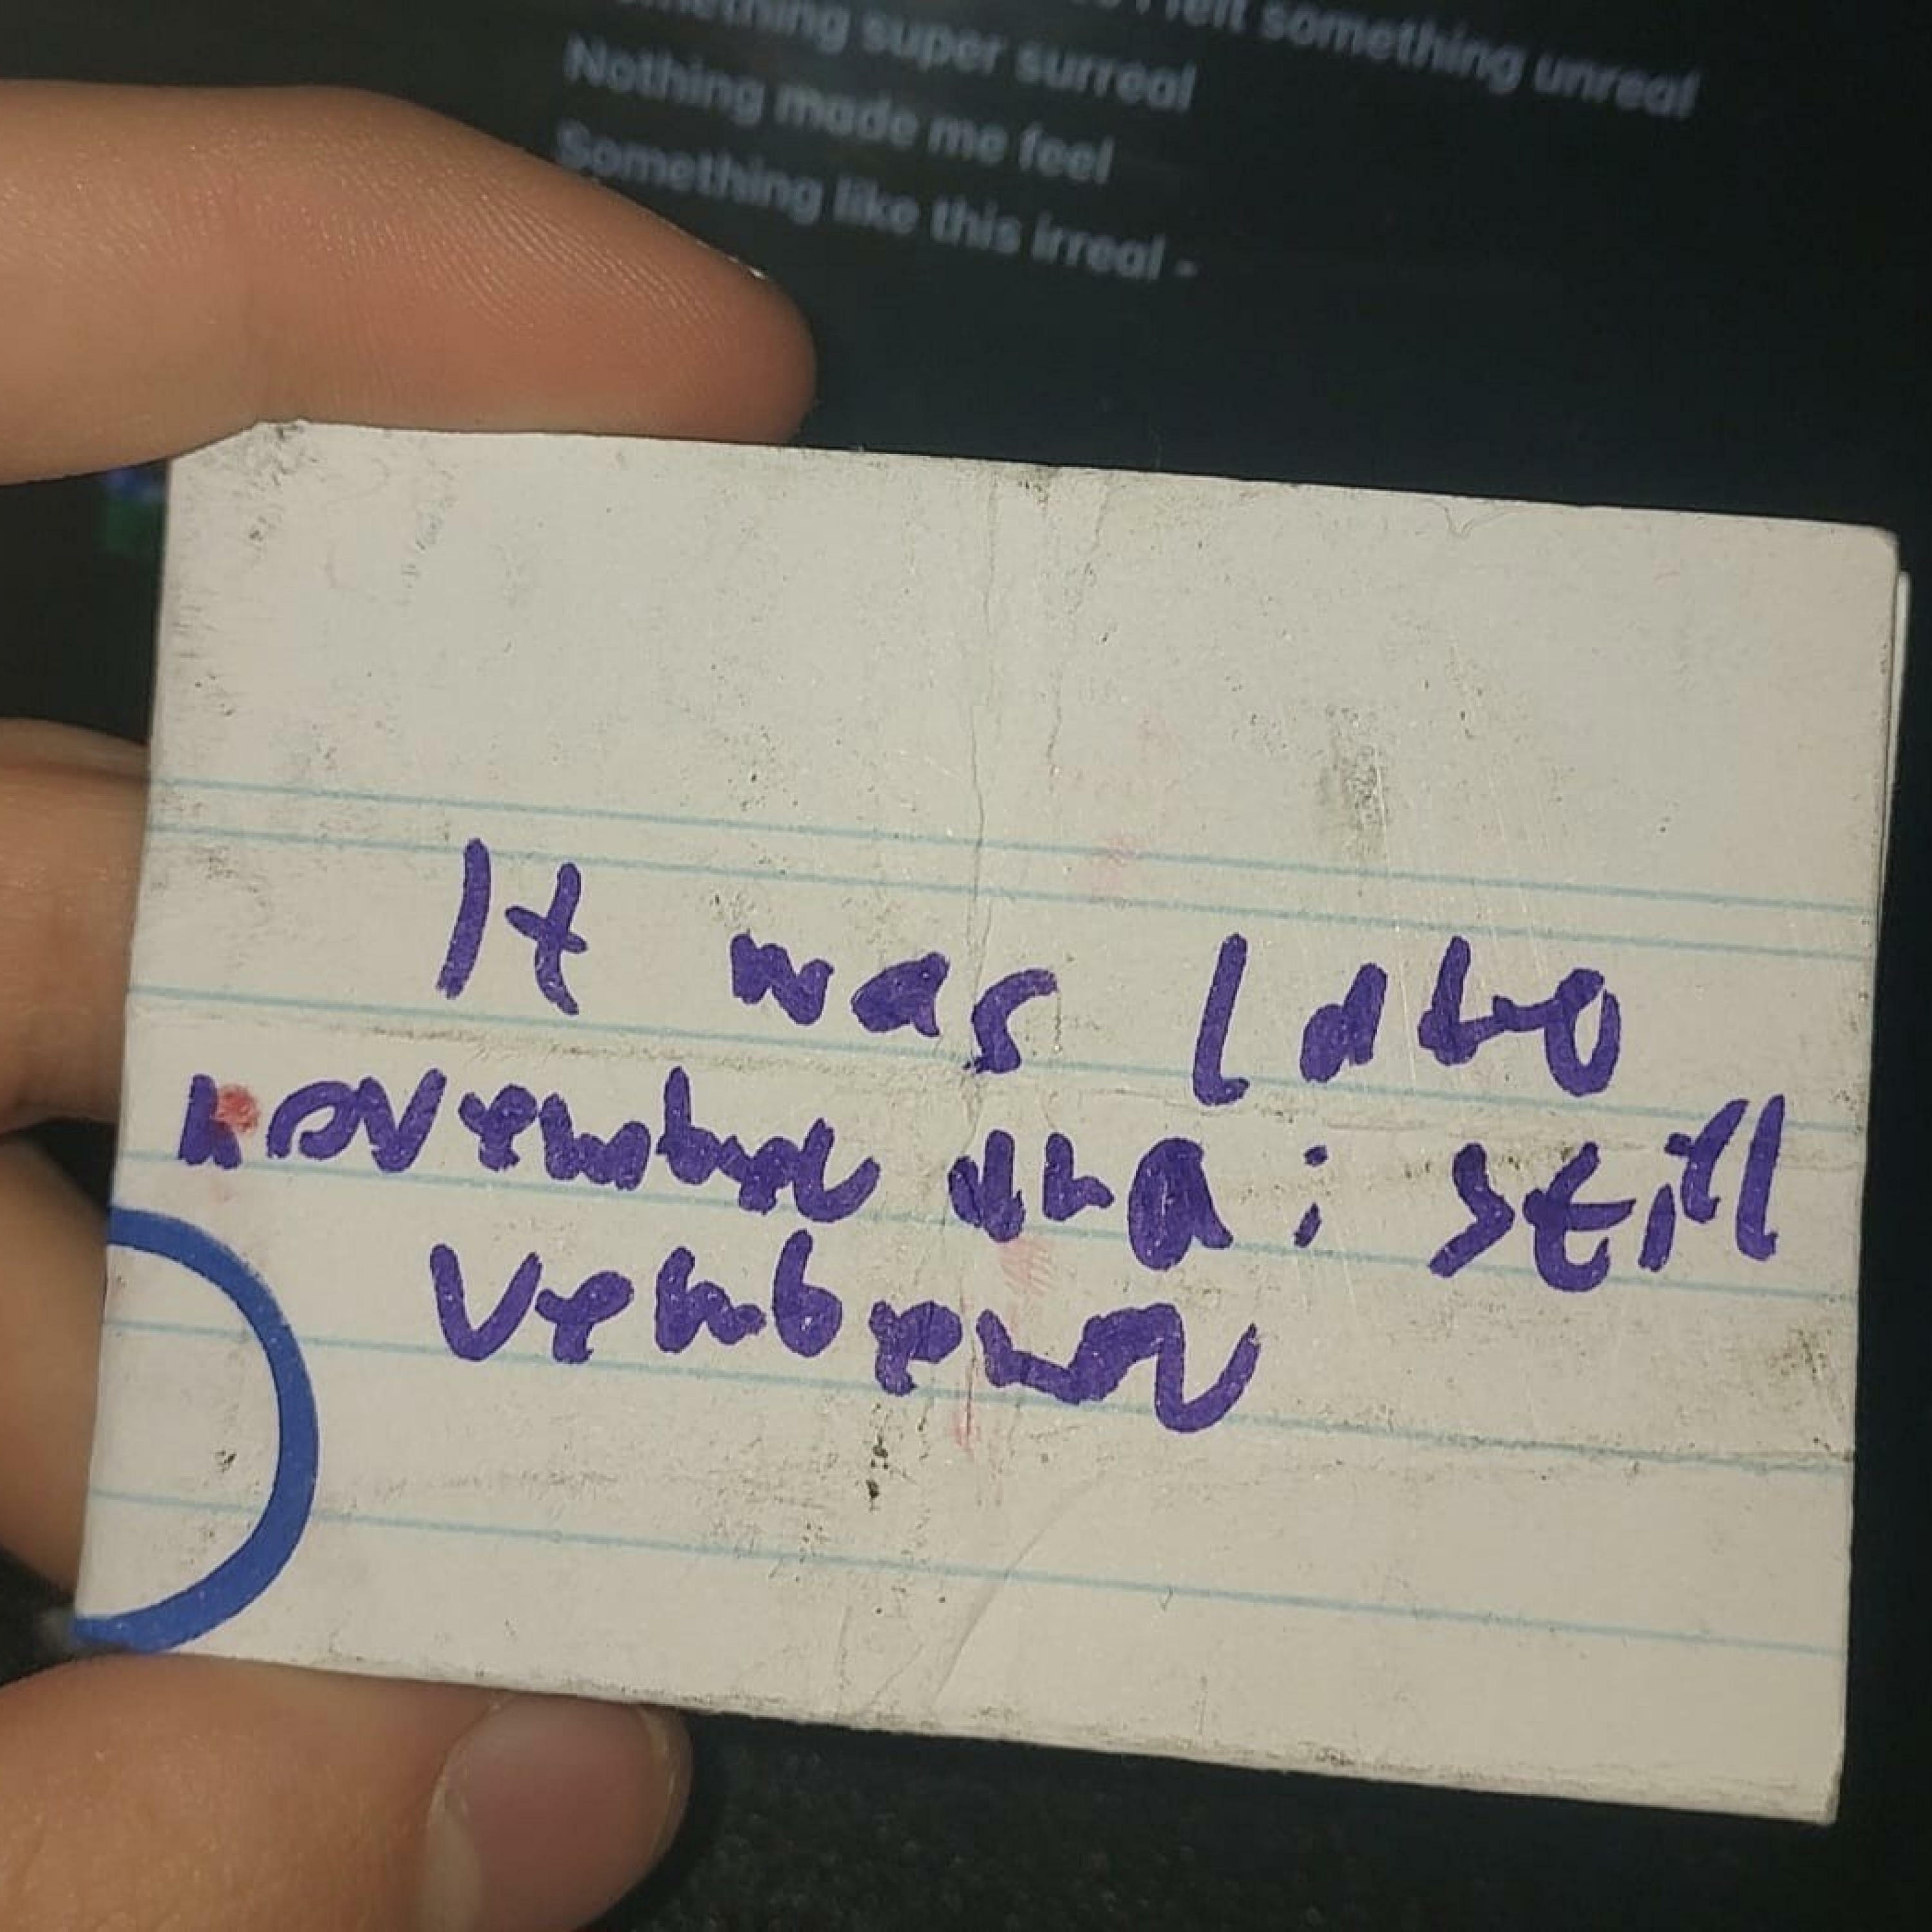 felt something unreal
something super surreal
Nothing made me feel
Something like this irreal -
It was late
november and i still